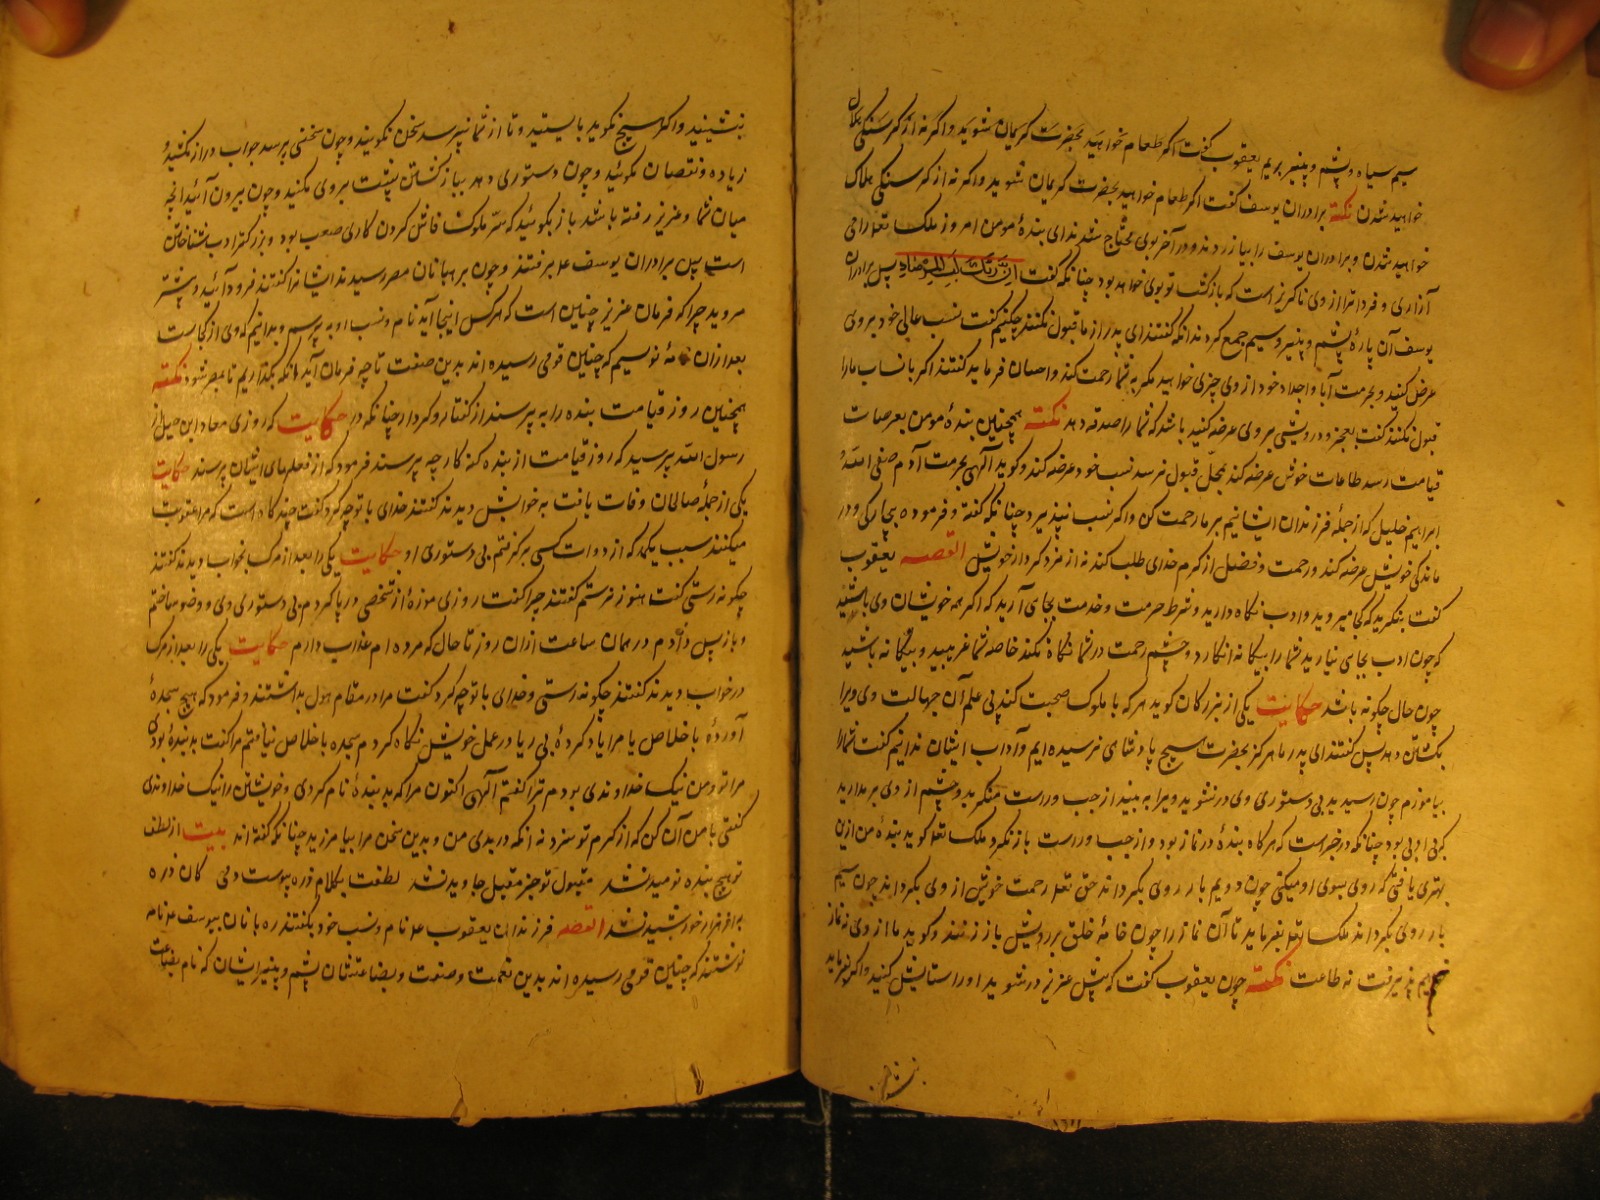 سیم سیاه و پشم و پنیر بریم یعقوب گفت اکر طعام خواهید بحضرت کریمان شوید واکر نه از کرسنکی هلاک
خواهید شدن نکته برادران یوسف گفت اکر طعام خواهید بحضرت کریمان شوید واکر نه از کرسنکی هلاک
خواهید شدن و برادران یوسف را بیازردند و در آخر بوی محتاج شدند ای بندهٔ مومن امروز ملک تعه را می
آزاری و فردا ترا از وی ناکریز است که بازکشت تو بوی خواهد بود چنانکه گفت ان ربک لبالمرصاد پس برادران
یوسف آن پارهٔ پشم و پنیر و سیم جمع کردند انکه کفتند ای پدر از ما قبول نکنند چکنیم کفت نسب عالی خود بروی
عرض کنید و بحرمت آبا و اجداد خود از وی چیزی خواهید مکر به شما رحمت کند و احسان فرماید کفتند اکر بانساب مارا
قبول نکنند کفت بعجز و درویشی بروی عرضه کنید باشد که شما را صدقه دهد نکته همچنین بندهٔ مومن بعرصات
قیامت رسد طاعات خوش عرضه کند بمحل قبول نرسد نسب خود عرضه کند و کوید آلهی بحرمت آدم صفی الله و
ابراهیم خلیل که از جمله فرزندان ایشانیم بر ما رحمت کن واکر نسب نپذیرد چنانکه کفته و فرموده بیچارکی و در
ماندکی خویش عرضه کند و رحمت و فضل از کرم خدای طلب کند نه از مزد کردار خویش القصه یعقوب
کفت بنکرید که کجا میروید و ادب نکاه دارید و شرط حرمت و خدمت بجای آرید که اکر همه خوشان وی باشید
که چون ادب بجای نیارید شما را بیکانه انکارد و بچشم رحمت در شما نکاه نکند خاصه شما غریبید و بیکانه باشید
چون حال چکونه باشد حکایت یکی از بزرکان کوید هر که با ملوک صحبت کند بی علم آن جهالت وی ویرا
بکشتن دهد پس کفتند ای پدر ما هرکز بحضرت هیچ پادشاهی نرسیده ایم و آداب ایشان ندانیم کفت شما را
بیاموزم چون رسیدید بی دستوری وی در نشوید و ویرا به بینید از چپ و راست منکرید و چشم از وی بر مدارید
که بی ادبی بود چنانکه در خبر است که هر کاه بندهٔ در نماز بود و از چپ و راست باز نکرد ملک تعه کوید بندهٔ من ازین
بهتری یافتی که روی بسوی او میکنی چون دویم بار روی بکرداند حق تعه رحمت خوش از وی بکرداند چون سیم
بار روی بکرداند ملک تعه بفرماید تا آن نماز را چون جامهٔ خلق بر رویش باز زنند و کوید ما از وی نه نماز
خواهیم پذیرفت نه طاعت نکته چون یعقوب کفت که پیش عزیز در شوید او را ستایش کنید واکر فرماید
بنشینید
بنشینید واکر هیچ نکوید بایستید و تا از شما نپرسد سخن نکویید و چون سخنی پرسد جواب دراز مکشید و
زیاده و نقصان مکوئید و چون دستوری دهد بباز کشتن پشت بروی مکنید و چون بیرون آئید انچه
میان شما و عزیز رفته باشد باز مکوئید که سر ملوک فاش کردن کاری صعب بود و بزرکتر ادب شناختن
است پس برادران یوسف عم برفتند و چون بر بهابانان مصر رسیدند ایشانرا کفتند فرود آئید و پیشتر
مروید چرا که فرمان عزیز چنین است که هر کس اینجا آید نام و نسب او به پرسیم و بدانیم که وی از کجاست
بعد ازان نامهٔ نویسیم که چنین قومی رسیده اند بدین صفت تا چه فرمان آید انکه بکذاریم تا بمصر شود نکته
همچنین روز قیامت بنده را به پرسند از کفتار و کردار چنانکه در حکایت که روزی معاذ ابن جبل از
رسول الله پرسید که روز قیامت از بنده کنه کار چه پرسند فرمود که از فعلهای ایشان پرسند حکایت
یکی از جملهٔ صالحان وفات یافت به خوابش دیدند کفتند خدای با تو چه کرد کفت چند کاه است که مرا عقوبت
میکنند بسبب یکمد که از دوات کسی برکرفتم بی دستوری او حکایت یکی را بعد از مرک بخواب دیدند کفتند
چکونه رستی کفت هنوز نرستم کفتند چرا کفت روزی موزهٔ از شخصی در پا کردم بی دستوری وی و وضو ساختم
و باز پس دادم در همان ساعت ازان روز تا حال که مرده ام عذاب دارم حکایت یکی را بعد از مرک
در خواب دیدند کفتند چکونه رستی و خدای با تو چه کرد کفت مرا در مقام هول بداشتند و فرمود که هیچ سجدهٔ
آوردهٔ با خلاص یا مرا یاد کردهٔ بی ریا در عمل خویش نکاه کردم سجده با خلاص نیافتم مرا کفت بد بندهٔ بودی
مرا تو و من نیک خداوندی بودم ترا کفتم آلهی اکنون مرا که بد بندهٔ نام کردی و خویشتن را نیک خداوندی
کفتی با من آن کن که از کرم تو سزد نه انکه در یدی من و بدین سخن مرا بیامرزید چنانکه کفته اند بیت از لطف
تو هیچ بنده نومید نشد مقبول تو جز مقبل جاوید نشد لطفت بکدام ذره پیوست دمی کان ذره
به از هزار خورشید نشد القصه فرزندان یعقوب عم نام و نسب خود بکفتند ره بانان بیوسف عم نامه
نوشتند که چنین قومی رسیده اند بدین نعمت و صنعت و بضاعتشان پشم و پنیر ایشان که نام بضاعت